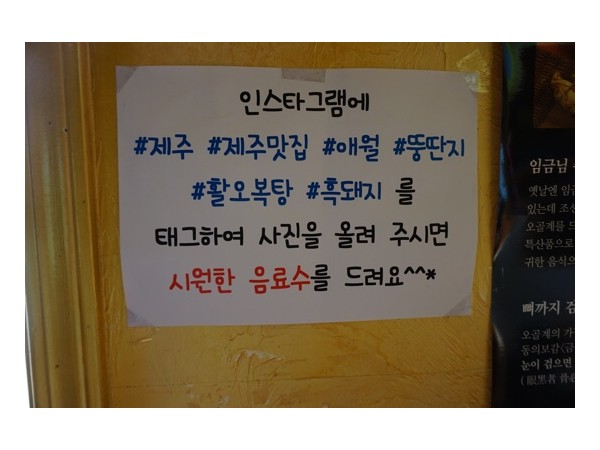 인스타그램에
#제주 #제주맛집 #애월 #뚱딴지
#활오복탕 #흑돼지 를
태그하여 사진을 올려 주시면
시원한 음료수를 드려요^^*
임금님
옛날엔 임금
있는데 조선
오골계를 드
특산품으로
귀한 음식으
뼈까지 검
오골계의 가
동의보감<금
눈이 검으면
(眼黑者 骨必